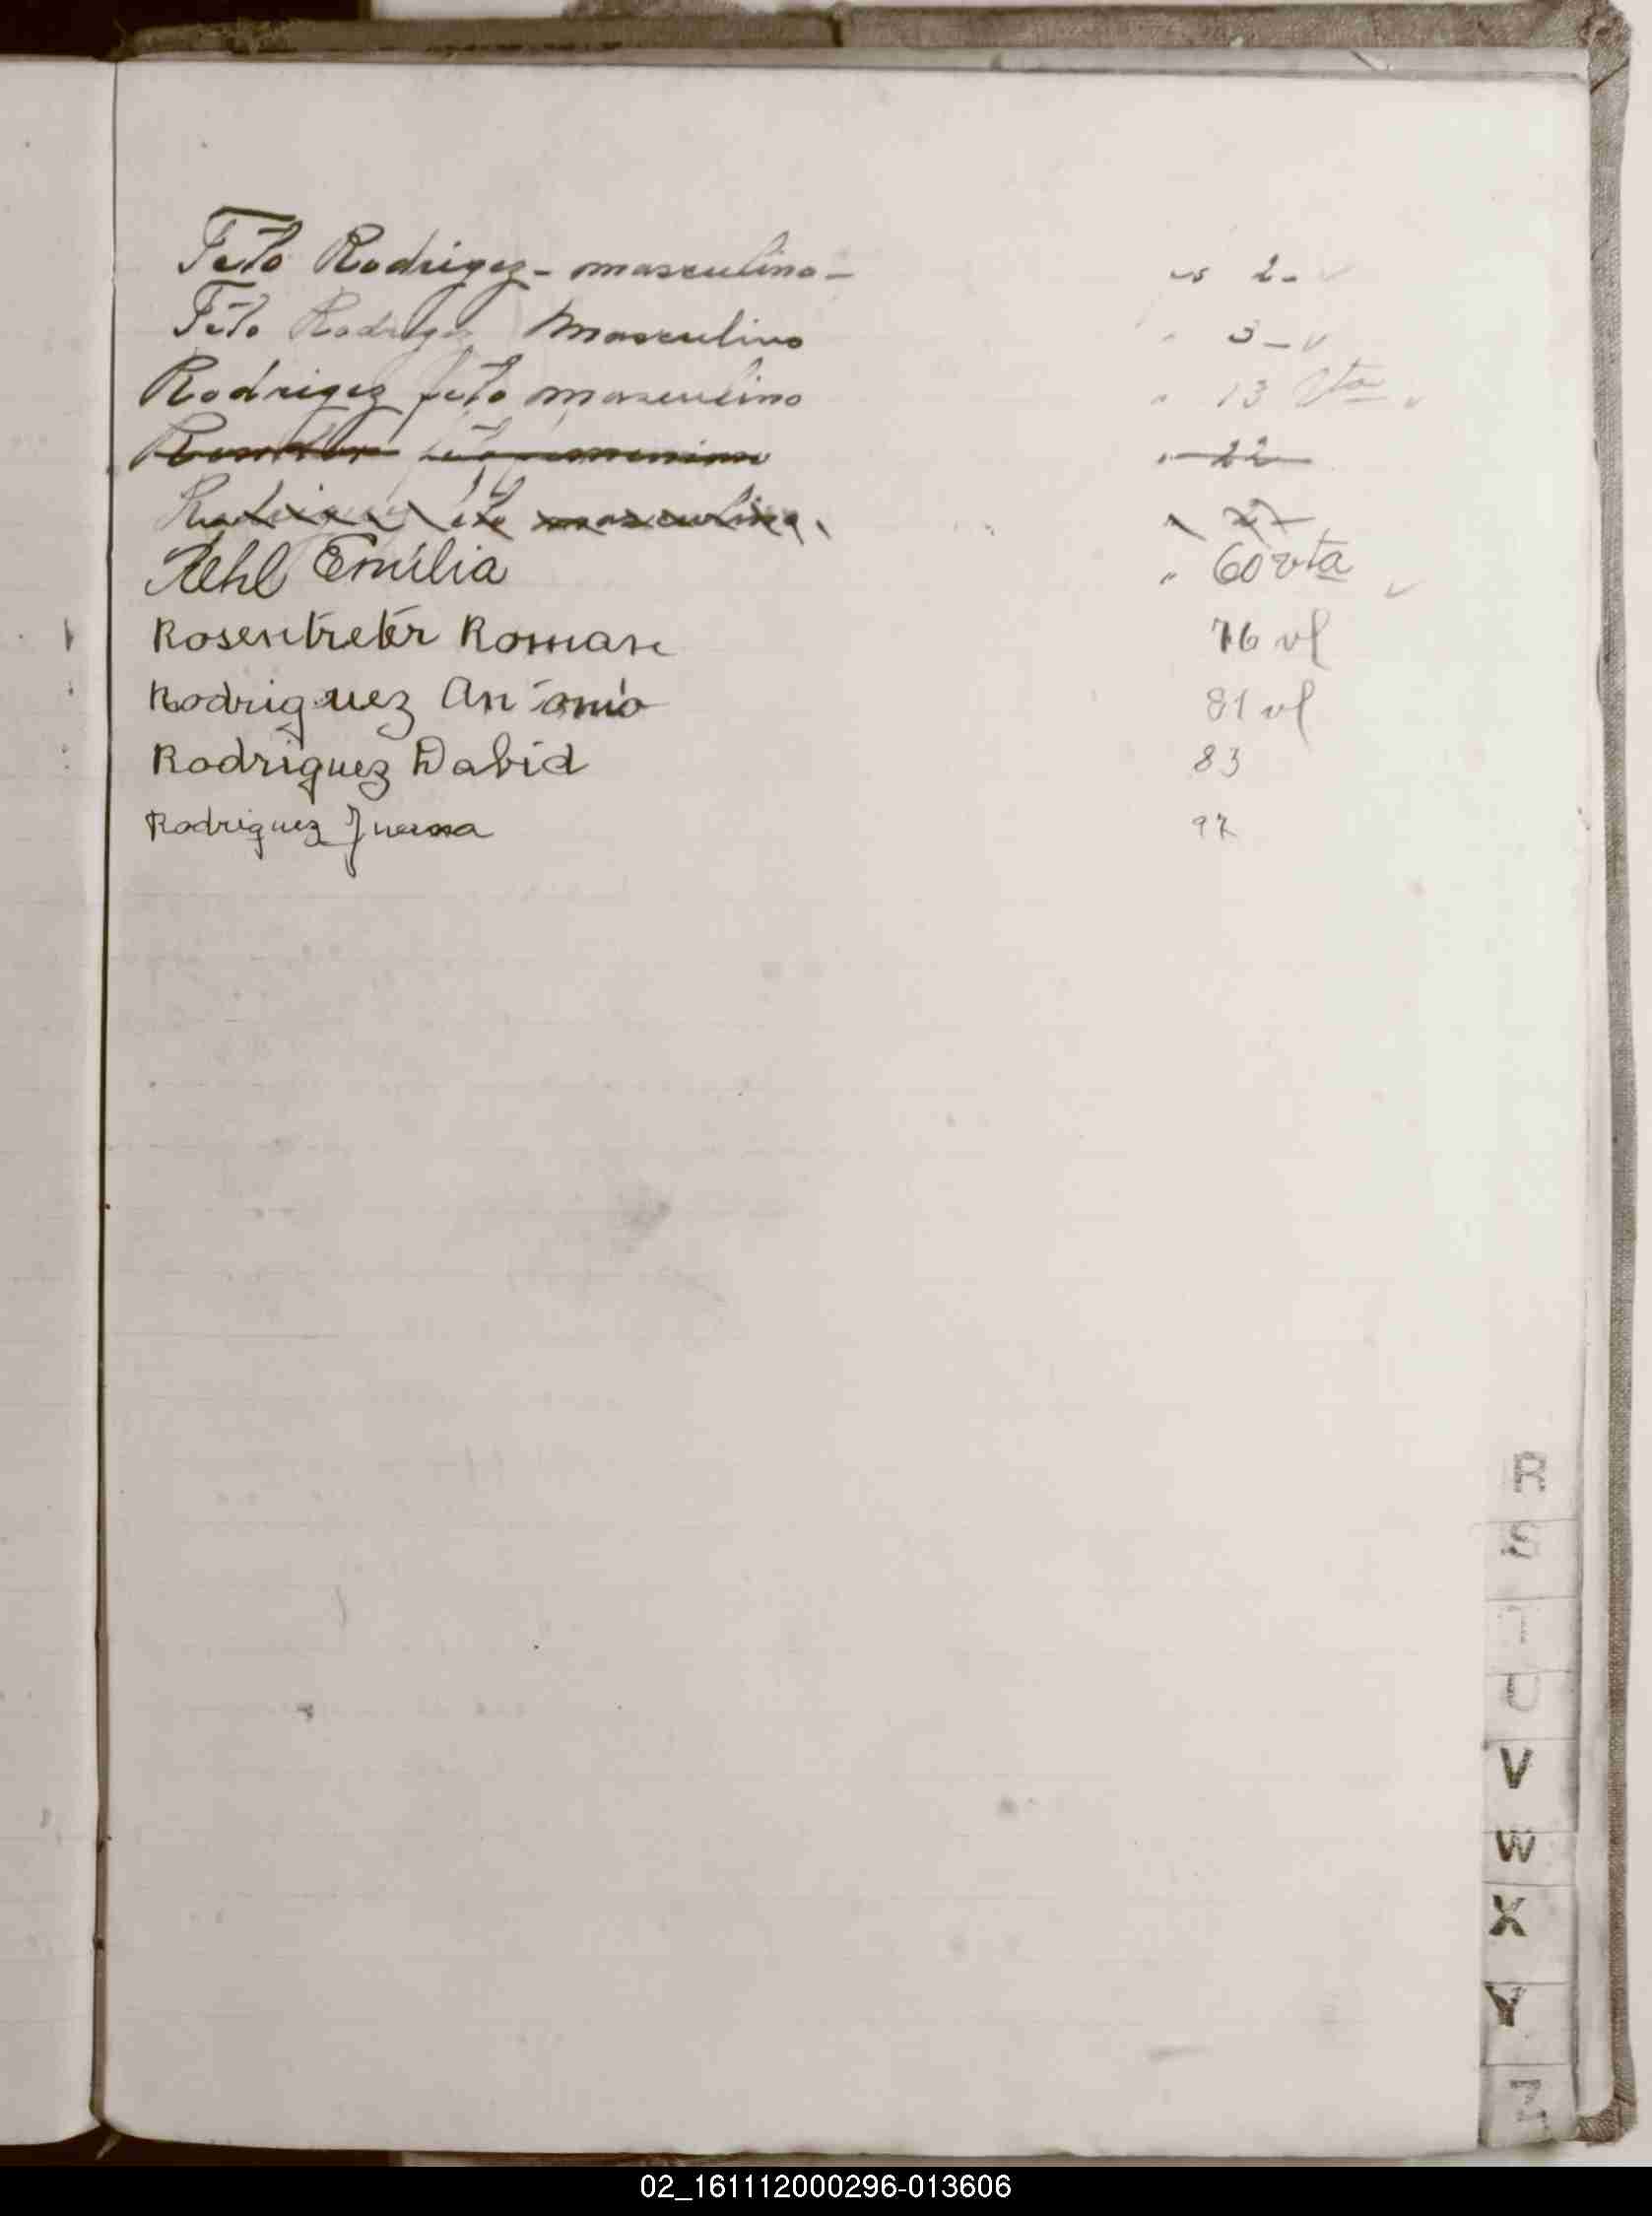 Feto Rodrigez - masculino - " 2 - v
Feto Rodrigez Masculino " 3 - v
Rodrigez feto masculino " 13 vta v
feto femenino " 22
Rodriguez feto masculino " 27
Rehl Emilia " 60 vta v
Rosentreter Roman 76 vl
Rodriguez Antonio 81 vl
Rodriguez David 83
Rodriguez Juana 97
R
S
T
U
V
W
X
Y
Z
02_161112000296-013606